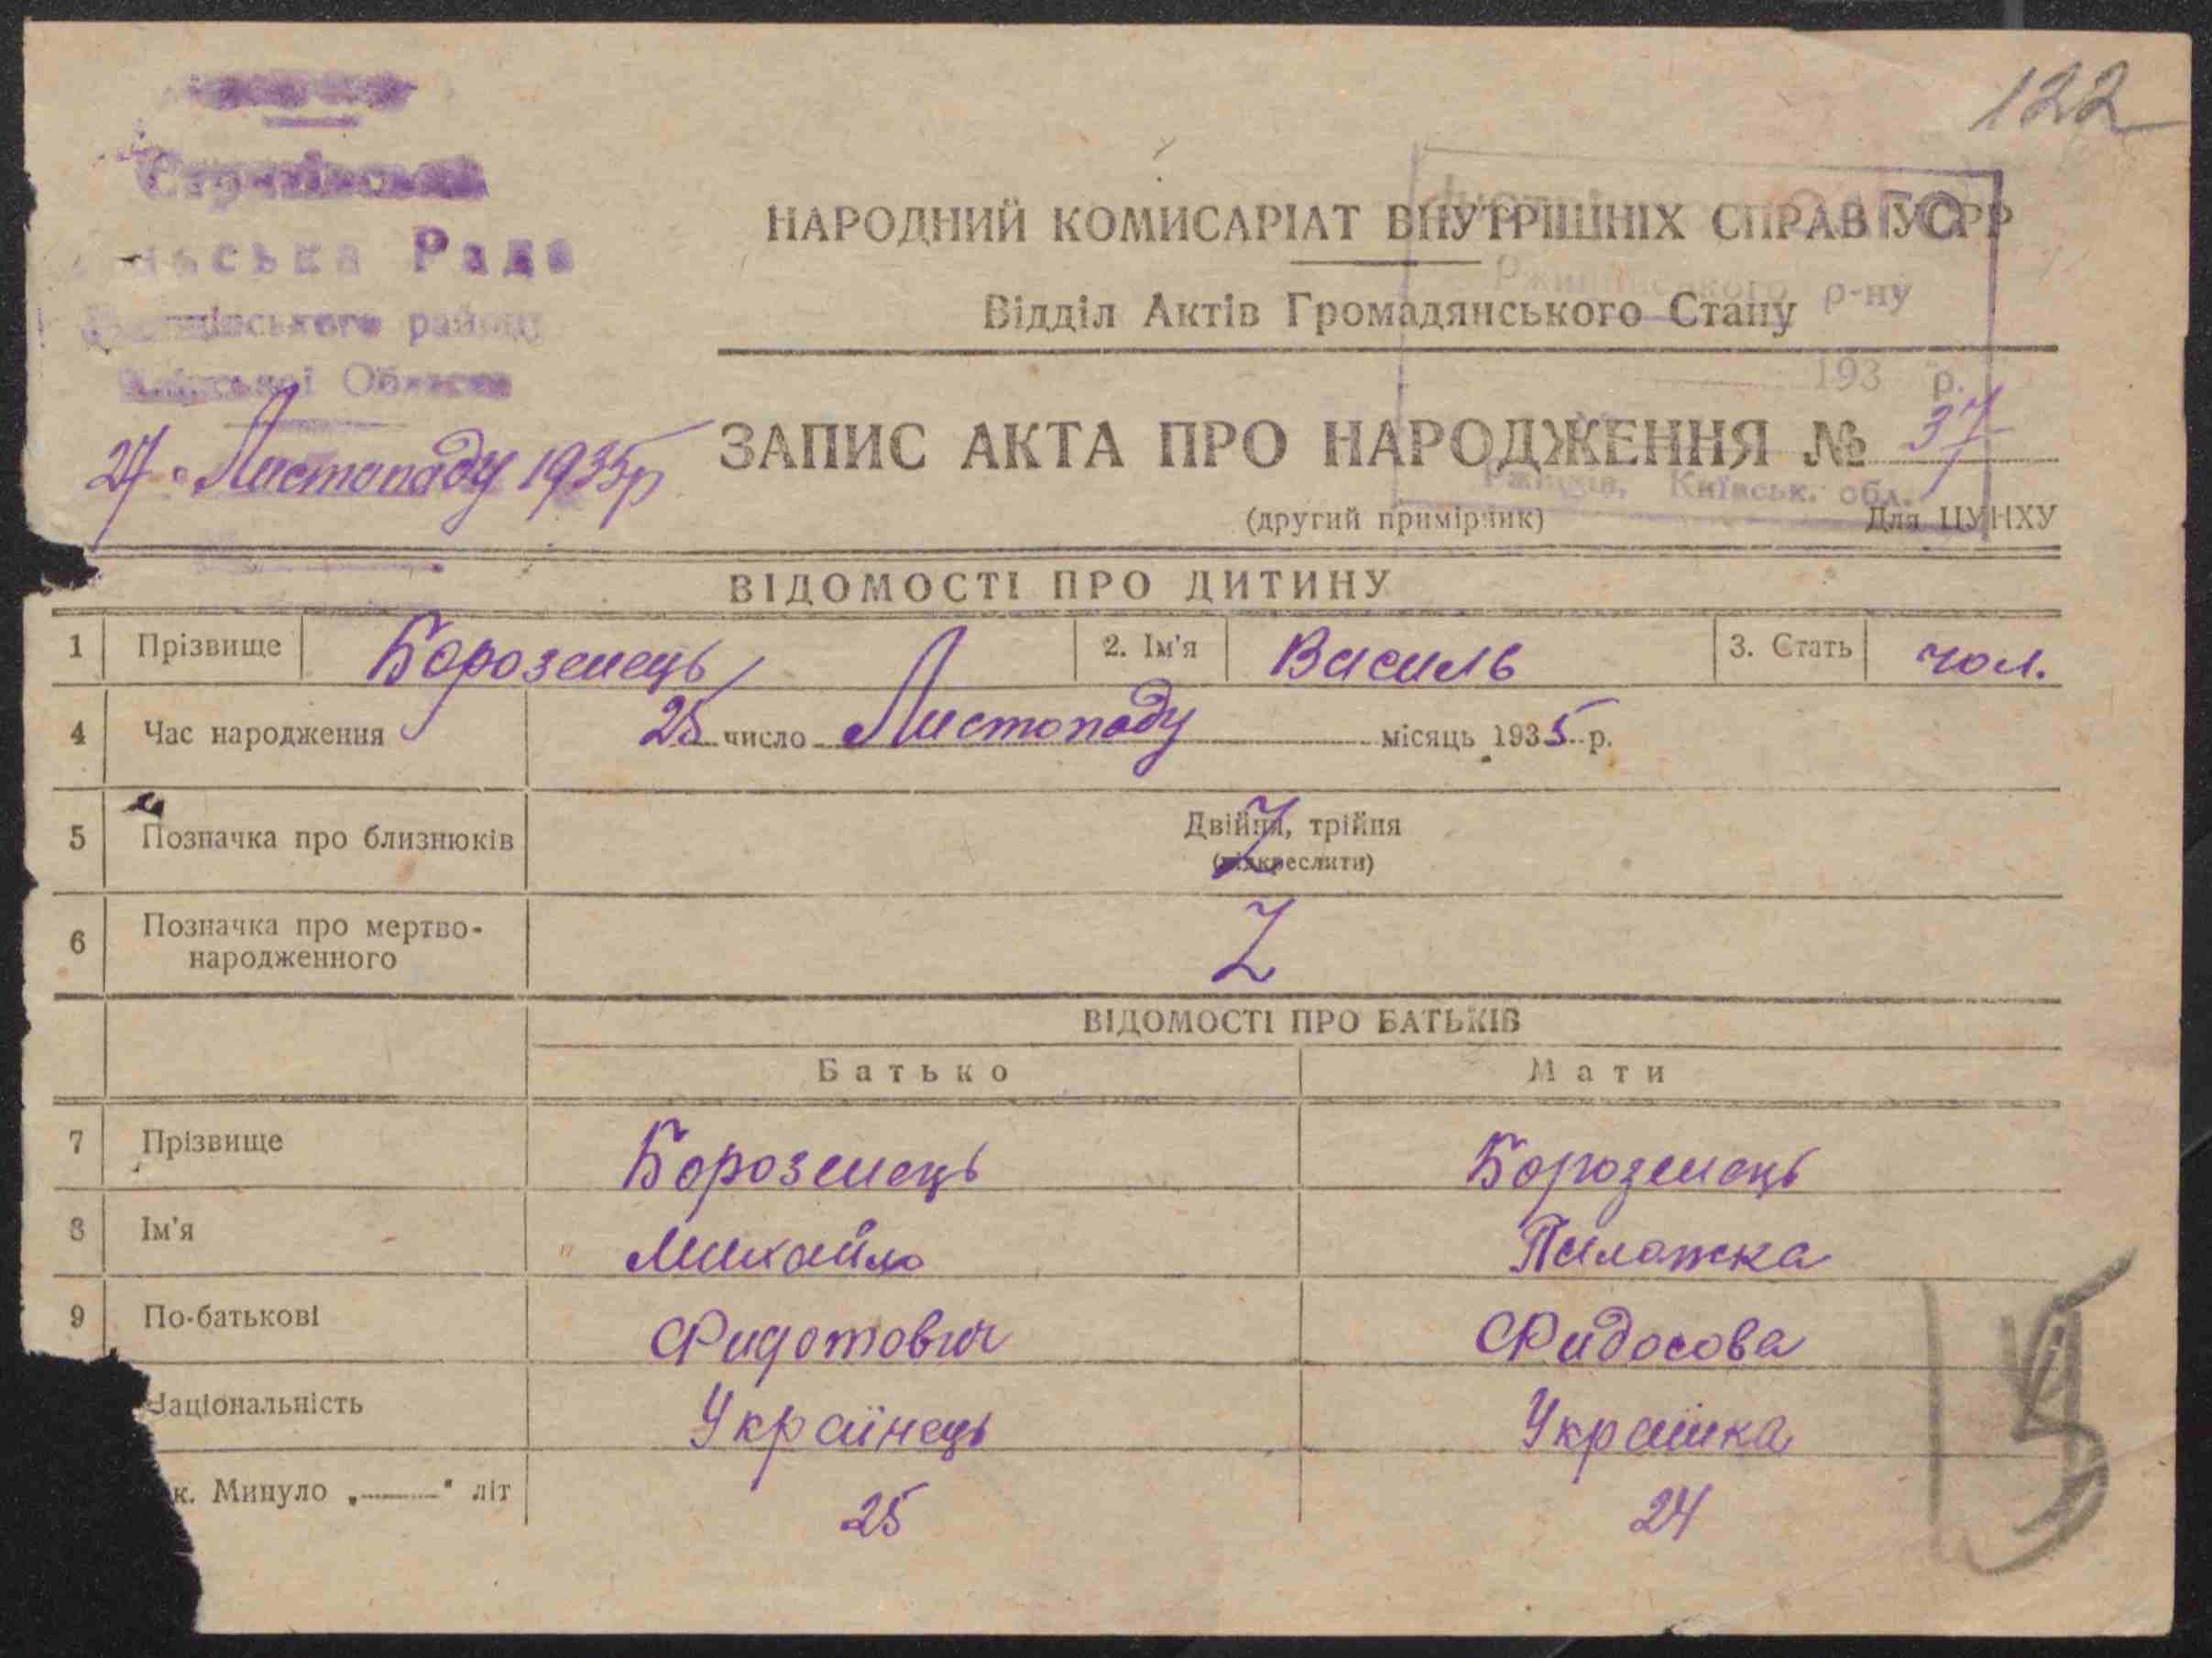 122
Рада
району
Області
27 Листопаду 1935р
НАРОДНИЙ КОМИСАРІАТ ВНУТРІШНІХ СПРАВ УСРР
Відділ Актів Громадянського Стану
р-ну
193 р.
ЗАПИС АКТА ПРО НАРОДЖЕННЯ № 37
Київськ. обл.
(другий примірник) Для ЦУНХУ
ВІДОМОСТІ ПРО ДИТИНУ
1 Прізвище Бороземець 2. Ім'я Василь 3. Стать чол.
4 Час народження 25 число Листопаду місяць 1935 р.
5 Позначка про близнюків Двійня, трійня
(підкреслити)
6 Позначка про мертво-
народженного Z
ВІДОМОСТІ ПРО БАТЬКІВ
Батько Мати
7 Прізвище Бороземець Бороземець
8 Ім'я Михайло Палажка
9 По-батькові Фидотович Фидосова
Національність Українець Українка
к. Минуло „——" літ 25 24